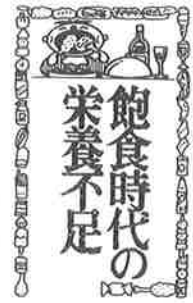 飽食時代の
栄養不足